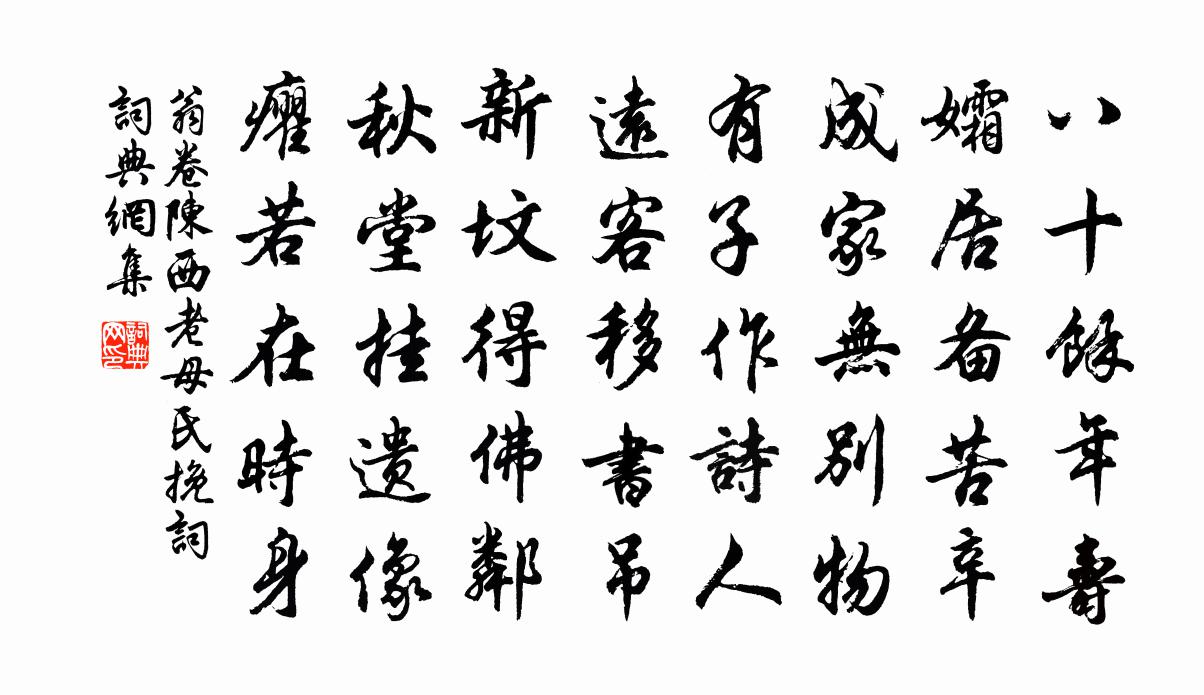 八十餘年壽
孀居备苦辛
成家無别物
有子作詩人
遠客移書吊
新坟得佛鄰
秋堂挂遗像
癯若在時身
翁卷陳西老母氏挽詞
詞典網集
詞典网印